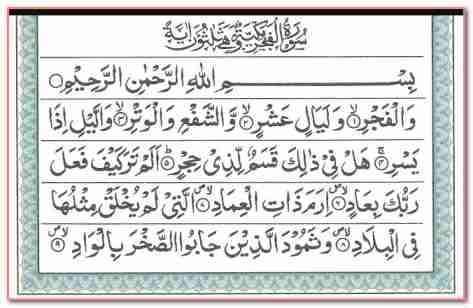 سُوْرَةُ الْفَجْرِ مَكِّيَّةٌ وَّهِيَ ثَلٰثُوْنَ اٰيَةً
بِسْمِ اللّٰهِ الرَّحْمٰنِ الرَّحِيْمِ○
وَالْفَجْرِ۝۱ وَلَيَالٍ عَشْرٍ۝۲ وَّالشَّفْعِ وَالْوَتْرِ۝۳ وَالَّيْلِ اِذَا
يَسْرِ۝۴ هَلْ فِيْ ذٰلِكَ قَسَمٌ لِّذِيْ حِجْرٍ۝۵ اَلَمْ تَرَ كَيْفَ فَعَلَ
رَبُّكَ بِعَادٍ۝۶ اِرَمَ ذَاتِ الْعِمَادِ۝۷ الَّتِيْ لَمْ يُخْلَقْ مِثْلُهَا
فِي الْبِلَادِ۝۸ وَثَمُوْدَ الَّذِيْنَ جَابُوا الصَّخْرَ بِالْوَادِ۝۹